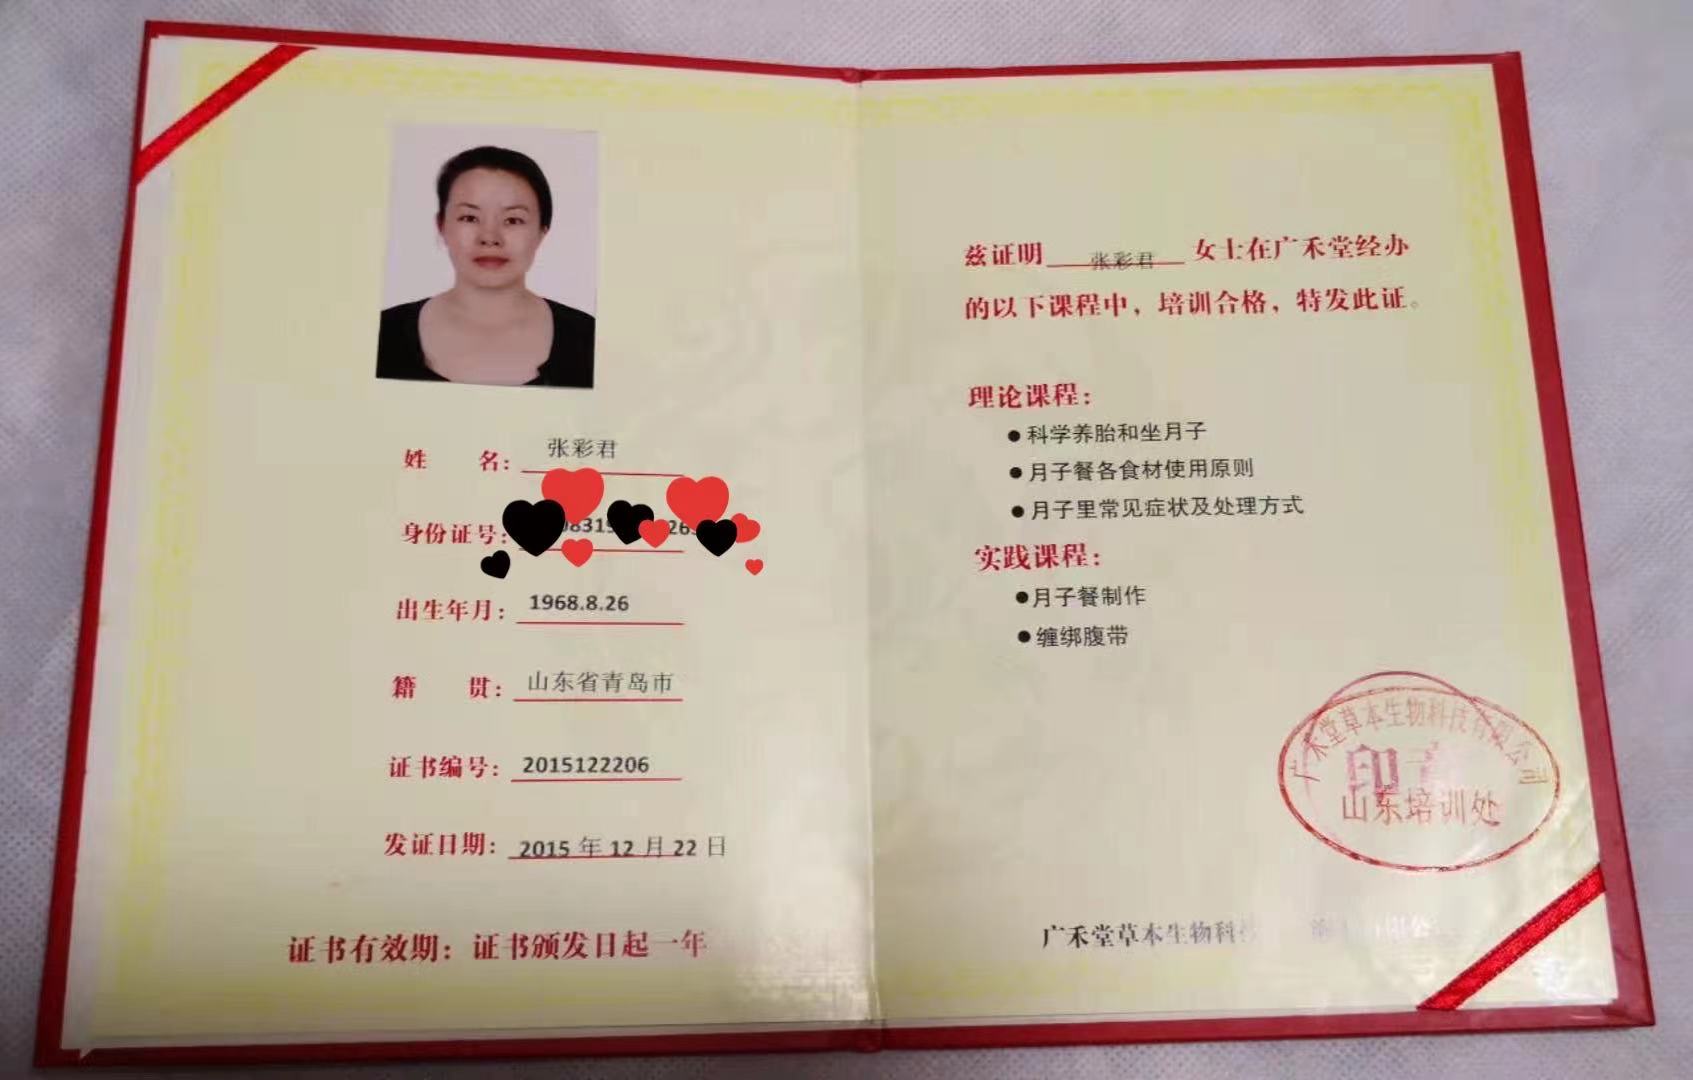 姓 名：张彩君
身份证号：
出生年月：1968.8.26
籍 贯：山东省青岛市
证书编号：2015122206
发证日期：2015 年 12 月 22 日
证书有效期：证书颁发日起一年
兹证明 张彩君 女士在广禾堂经办
的以下课程中，培训合格，特发此证。
理论课程：
●科学养胎和坐月子
●月子餐各食材使用原则
●月子里常见症状及处理方式
实践课程：
●月子餐制作
●缠绑腹带
广禾堂草本生物科技有限公司
印章
山东培训处
广禾堂草本生物科